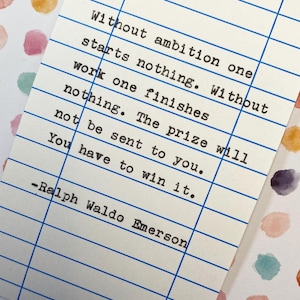 Without ambition one
starts nothing. Without
work one finishes
nothing. The prize will
not be sent to you.
You have to win it.
-Ralph Waldo Emerson